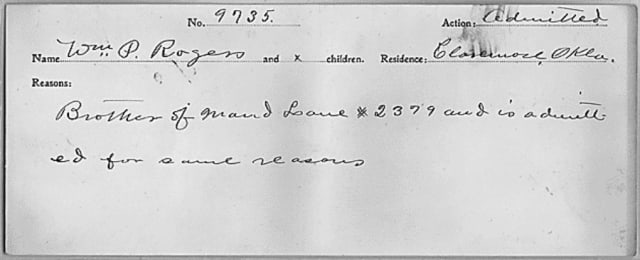 No. 9735. Action: Admitted
Name Wm P. Rogers and x children. Residence: Claremore, Okla.
Reasons:
Brother of Maud Lane # 2379 and is admitt
ed for same reasons